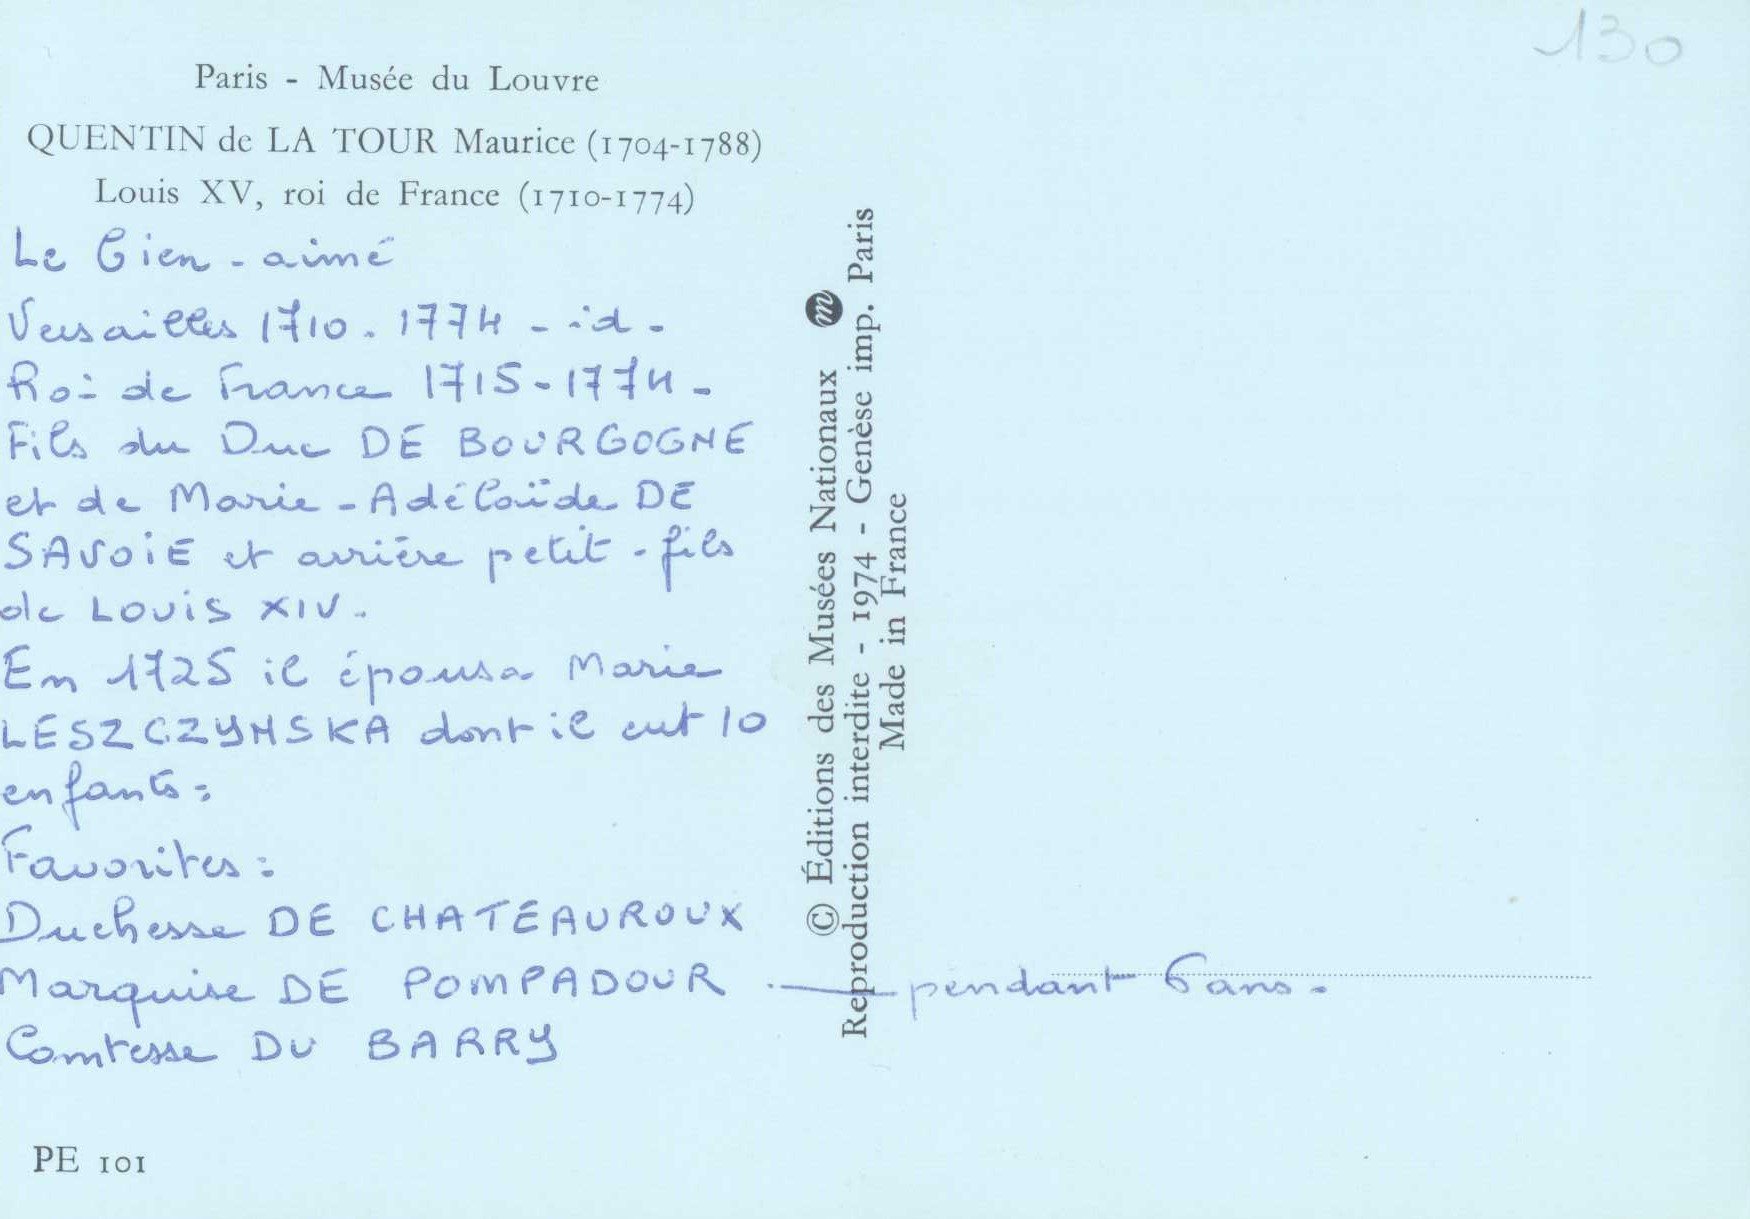 130
Paris - Musée du Louvre
QUENTIN de LA TOUR Maurice (1704-1788)
Louis XV, roi de France (1710-1774)
Le Bien-aimé
Versailles 1710. 1774 - id -
Roi de France 1715-1774-
Fils du Duc DE BOURGOGNE
et de Marie-Adélaïde DE
SAVOIE et arrière petit-fils
de LOUIS XIV.
En 1725 il épousa Marie
LESZCZYNSKA dont il eut 10
enfants:
Favorites:
Duchesse DE CHATEAUROUX
Marquise DE POMPADOUR - pendant 6 ans.
Comtesse DU BARRY
PE 101
© Éditions des Musées Nationaux m
Reproduction interdite - 1974 - Genèse imp. Paris
Made in France